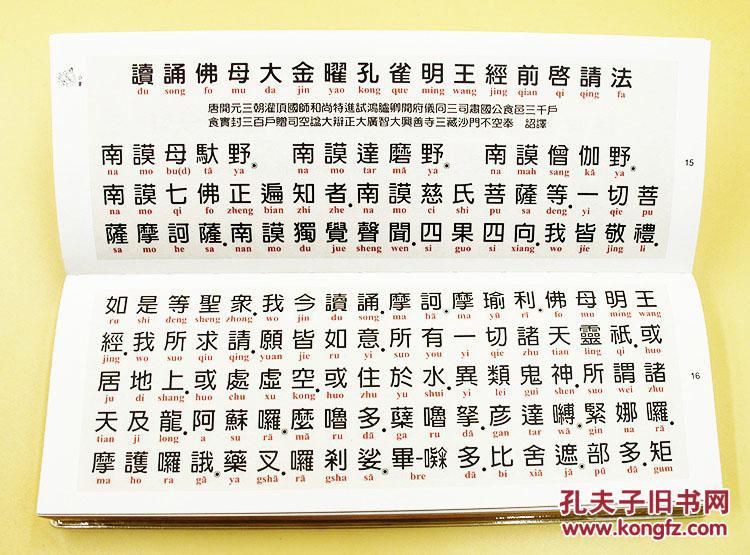 讀誦佛母大金曜孔雀明王經前啓請法
du song fo mu da jin yao kong que ming wang jing qian qi qing fa
唐開元三朝灌頂國師和尚特進試鴻臚卿開府儀同三司肅國公食邑三千戶
食實封三百戶贈司空謚大辯正大廣智大興善寺三藏沙門不空奉 詔譯
南謨母馱野。 南謨達磨野。 南謨僧伽野。
na mo bu(d) tā ya na mo tar mā ya na mah sang kā ya
15
南謨七佛正遍知者。南謨慈氏菩薩等一切菩
na mo qi fo zheng bian zhi zhe na mo ci shi pu sa deng yi qie pu
薩摩訶薩。南謨獨覺聲聞。四果四向。我皆敬禮。
sa mo he sa nan mo du jue sheng wen si guo si xiang wo jie jing li
如是等聖衆。我今讀誦摩訶摩瑜利。佛母明王
ru shi deng sheng zhong wo jin du song ma hā ma yū rī fo mu ming wang
經。我所求請。願皆如意。所有一切諸天靈祇。或
jing wo suo qiu qing yuan jie ru yi suo you yi qie zhu tian ling qi huo
居地上。或處虛空。或住於水。異類鬼神。所謂諸
ju di shang huo chu xu kong huo zhu yu shui yi lei gui shen suo wei zhu
16
天及龍。阿蘇囉。麼嚕多。蘗嚕拏。彦達嚩。緊娜囉。
tian ji long a su rā mā ru dā ga ru dā gan tar wā gin na rā
摩護囉誐。藥叉。囉剎娑。畢-㗚多。比舍遮。部多。矩
ma ho rā gā ya gshā rā gsha sā bre dā bi xiā jā pū dā gum
孔夫子旧书网
www.kongfz.com